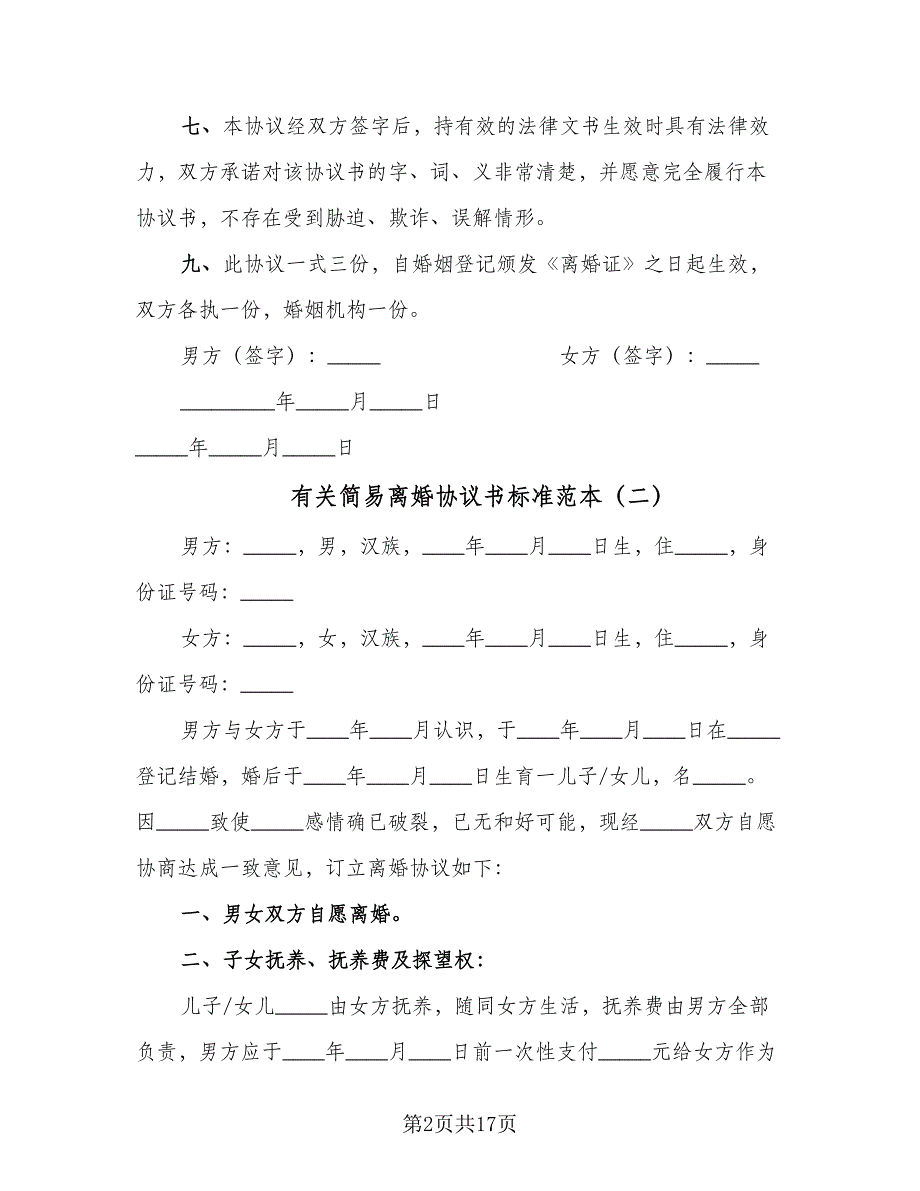 七、本协议经双方签字后，持有效的法律文书生效时具有法律效
力，双方承诺对该协议书的字、词、义非常清楚，并愿意完全履行本
协议书，不存在受到胁迫、欺诈、误解情形。
九、此协议一式三份，自婚姻登记颁发《离婚证》之日起生效，
双方各执一份，婚姻机构一份。
男方（签字）：_____ 女方（签字）：_____
_________年_____月_____日
_____年_____月_____日
有关简易离婚协议书标准范本（二）
男方：_____，男，汉族，____年____月____日生，住_____，身
份证号码：_____
女方：_____，女，汉族，____年____月____日生，住_____，身
份证号码：_____
男方与女方于____年____月认识，于____年____月____日在_____
登记结婚，婚后于____年____月____日生育一儿子/女儿，名_____。
因_____致使_____感情确已破裂，已无和好可能，现经_____双方自愿
协商达成一致意见，订立离婚协议如下：
一、男女双方自愿离婚。
二、子女抚养、抚养费及探望权：
儿子/女儿_____由女方抚养，随同女方生活，抚养费由男方全部
负责，男方应于____年____月____日前一次性支付_____元给女方作为
第2页共17页